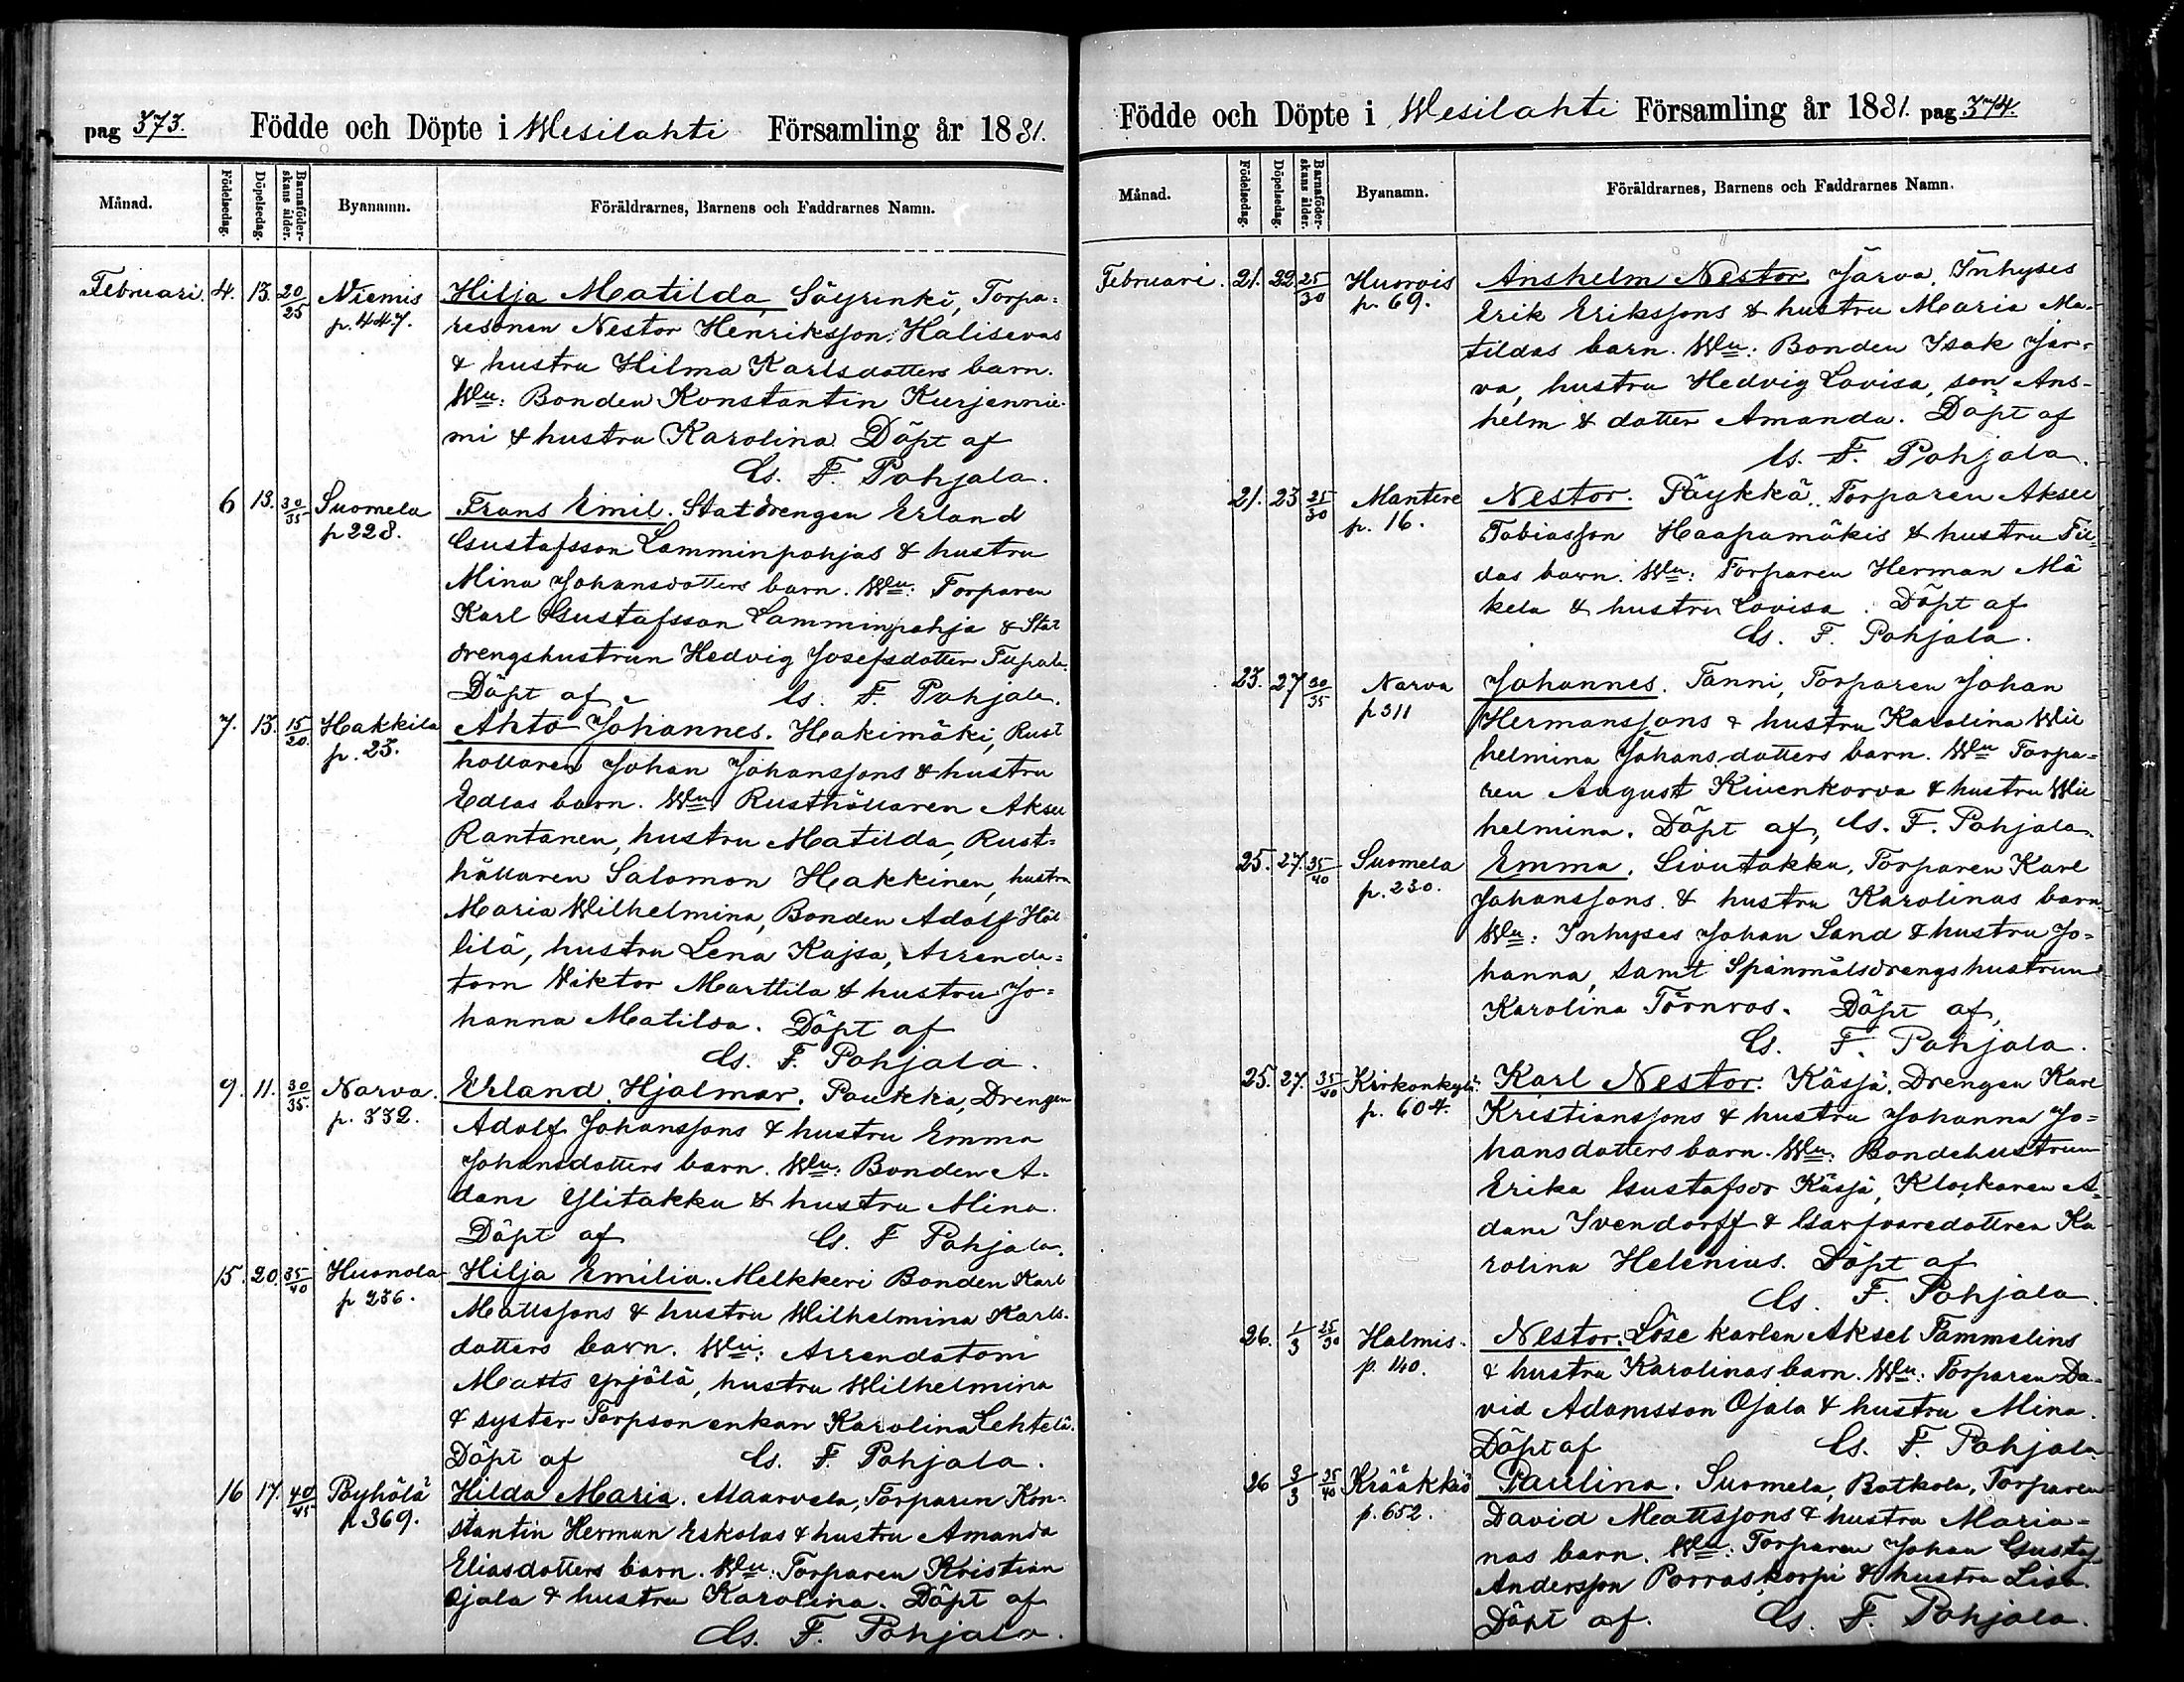 pag 373. Födde och Döpte i Wesilahti Församling år 1881.
Månad. Födelsedag. Döpelsedag. Barnaföderskans ålder. Byanamn. Föräldrarnes, Barnens och Faddrarnes Namn.
Februari. 4. 13. 20/25 Niemis Hilja Matilda, Säyrinki, Torpa=
p. 447. resonen Nestor Henriksson Halisevas
& hustru Hilma Karlsdotters barn.
Wn: Bonden Konstantin Kurjennie-
mi & hustru Karolina Döpt af
Gs. F. Pohjala.
6 13. 30/35 Suomela Frans Emil. Statdrengen Erland
p 228. Gustafsson Lamminpohjas & hustru
Mina Johansdotters barn. Wn: Torparen
Karl Gustafsson Lamminpohja & Stat
drengshustrun Hedvig Josefsdotter
Döpt af Gs. F. Pohjala.
7. 13. 15/20. Hakkila Ahto Johannes. Hakimäki, Rust
p. 23. hållaren Johan Johanssons & hustru
Edlas barn. Wn Rusthållaren Aksel
Rantanen, hustru Matilda, Rust=
hållaren Salomon Hakkinen, hustru
Maria Wilhelmina, Bonden Adolf Häl
lilä, hustru Lena Kajsa, Arrenda=
torn Viktor Marttila & hustru Jo=
hanna Matilda. Döpt af
Gs. F. Pohjala.
9. 11. 30/35. Narva. Erland Hjalmar. Paukka, Drengen
p. 332. Adolf Johanssons & hustru Emma
Johansdotters barn. Wn: Bonden A-
dam Ylitakku & hustru Mina.
Döpt af Gs. F Pohjala.
15. 20. 35/40 Huonola Hilja Emilia. Melkkeri Bonden Karl
p 236. Mattssons & hustru Wilhelmina Karls-
dotters barn. Wn: Arrendatorn
Matts Yrjölä, hustru Wilhelmina
& syster Torpson enkan Karolina Lehtelä.
Döpt af Gs. F. Pohjala.
16 17. 40/45 Pöyhölä Hilda Maria. Maarvela, Torparen Kon-
p 369. stantin Herman Eskolas & hustru Amanda
Eliasdotters barn. Wn: Torparen Kristian
Ojala & hustru Karolina. Döpt af
Gs. F. Pohjala.
Födde och Döpte i Wesilahti Församling år 1881. pag 374.
Månad. Födelsedag. Döpelsedag. Barnaföderskans ålder. Byanamn. Föräldrarnes, Barnens och Faddrarnes Namn.
Februari. 21. 22 25/30 Huorvis Anshelm Nestor Järva, Inhyses
p. 69. Erik Erikssons & hustru Maria Ma-
tildas barn. Wn: Bonden Isak Jär-
va, hustru Hedvig Lovisa, son Ans-
helm & dotter Amanda. Döpt af
Gs. F. Pohjala.
21. 23 25/30 Mantere Nestor. Päykkä. Torparen Aksel
p. 16. Tobiasson Haapamäkis & hustru Fii=
das barn. Wn: Torparen Herman Mä
kela & hustru Lovisa. Döpt af
Gs. F. Pohjala.
23. 27 30/35 Narva Johannes. Tanni, Torparen Johan
p 311 Hermanssons & hustru Karolina Wil
helmina Johansdotters barn. Wn Torpa=
ren August Kivenkorva & hustru Wil
helmina. Döpt af, Gs. F. Pohjala.
25. 27. 35/40 Suomela Emma. Sivutakku, Torparen Karl
p. 230. Johanssons & hustru Karolinas barn
Wn: Inhyses Johan Sand & hustru Jo=
hanna, samt Spånmålsdrengshustrun
Karolina Törnros. Döpt af,
Gs. F. Pohjala.
25. 27. 35/40 Kirkonkylä Karl Nestor. Käsjä, Drengen Karl
p. 604. Kristianssons & hustru Johanna Jo=
hansdotters barn. Wn: Bondehustrun
Erika Gustafsdr Käsjä, Klockaren A=
dam Ivendorff & Garfvaredottren Ka
rolina Helenius. Döpt af
Gs. F. Pohjala.
26. 1/3 25/30 Halmis. Nestor. Löse karlen Aksel Tammelins
p. 140. & hustru Karolinas barn. Wn: Torparen Da=
vid Adamsson Ojala & hustru Mina.
Döpt af Gs. F. Pohjala
26 3/3 35/40 Krääkkiö Paulina. Suomela, Botkola, Torparen
p. 652. David Mattssons & hustru Maria=
nas barn. Wn: Torparen Johan Gustaf
Andersson Porraskorpi & hustru Lisa.
Döpt af. Gs. F. Pohjala.